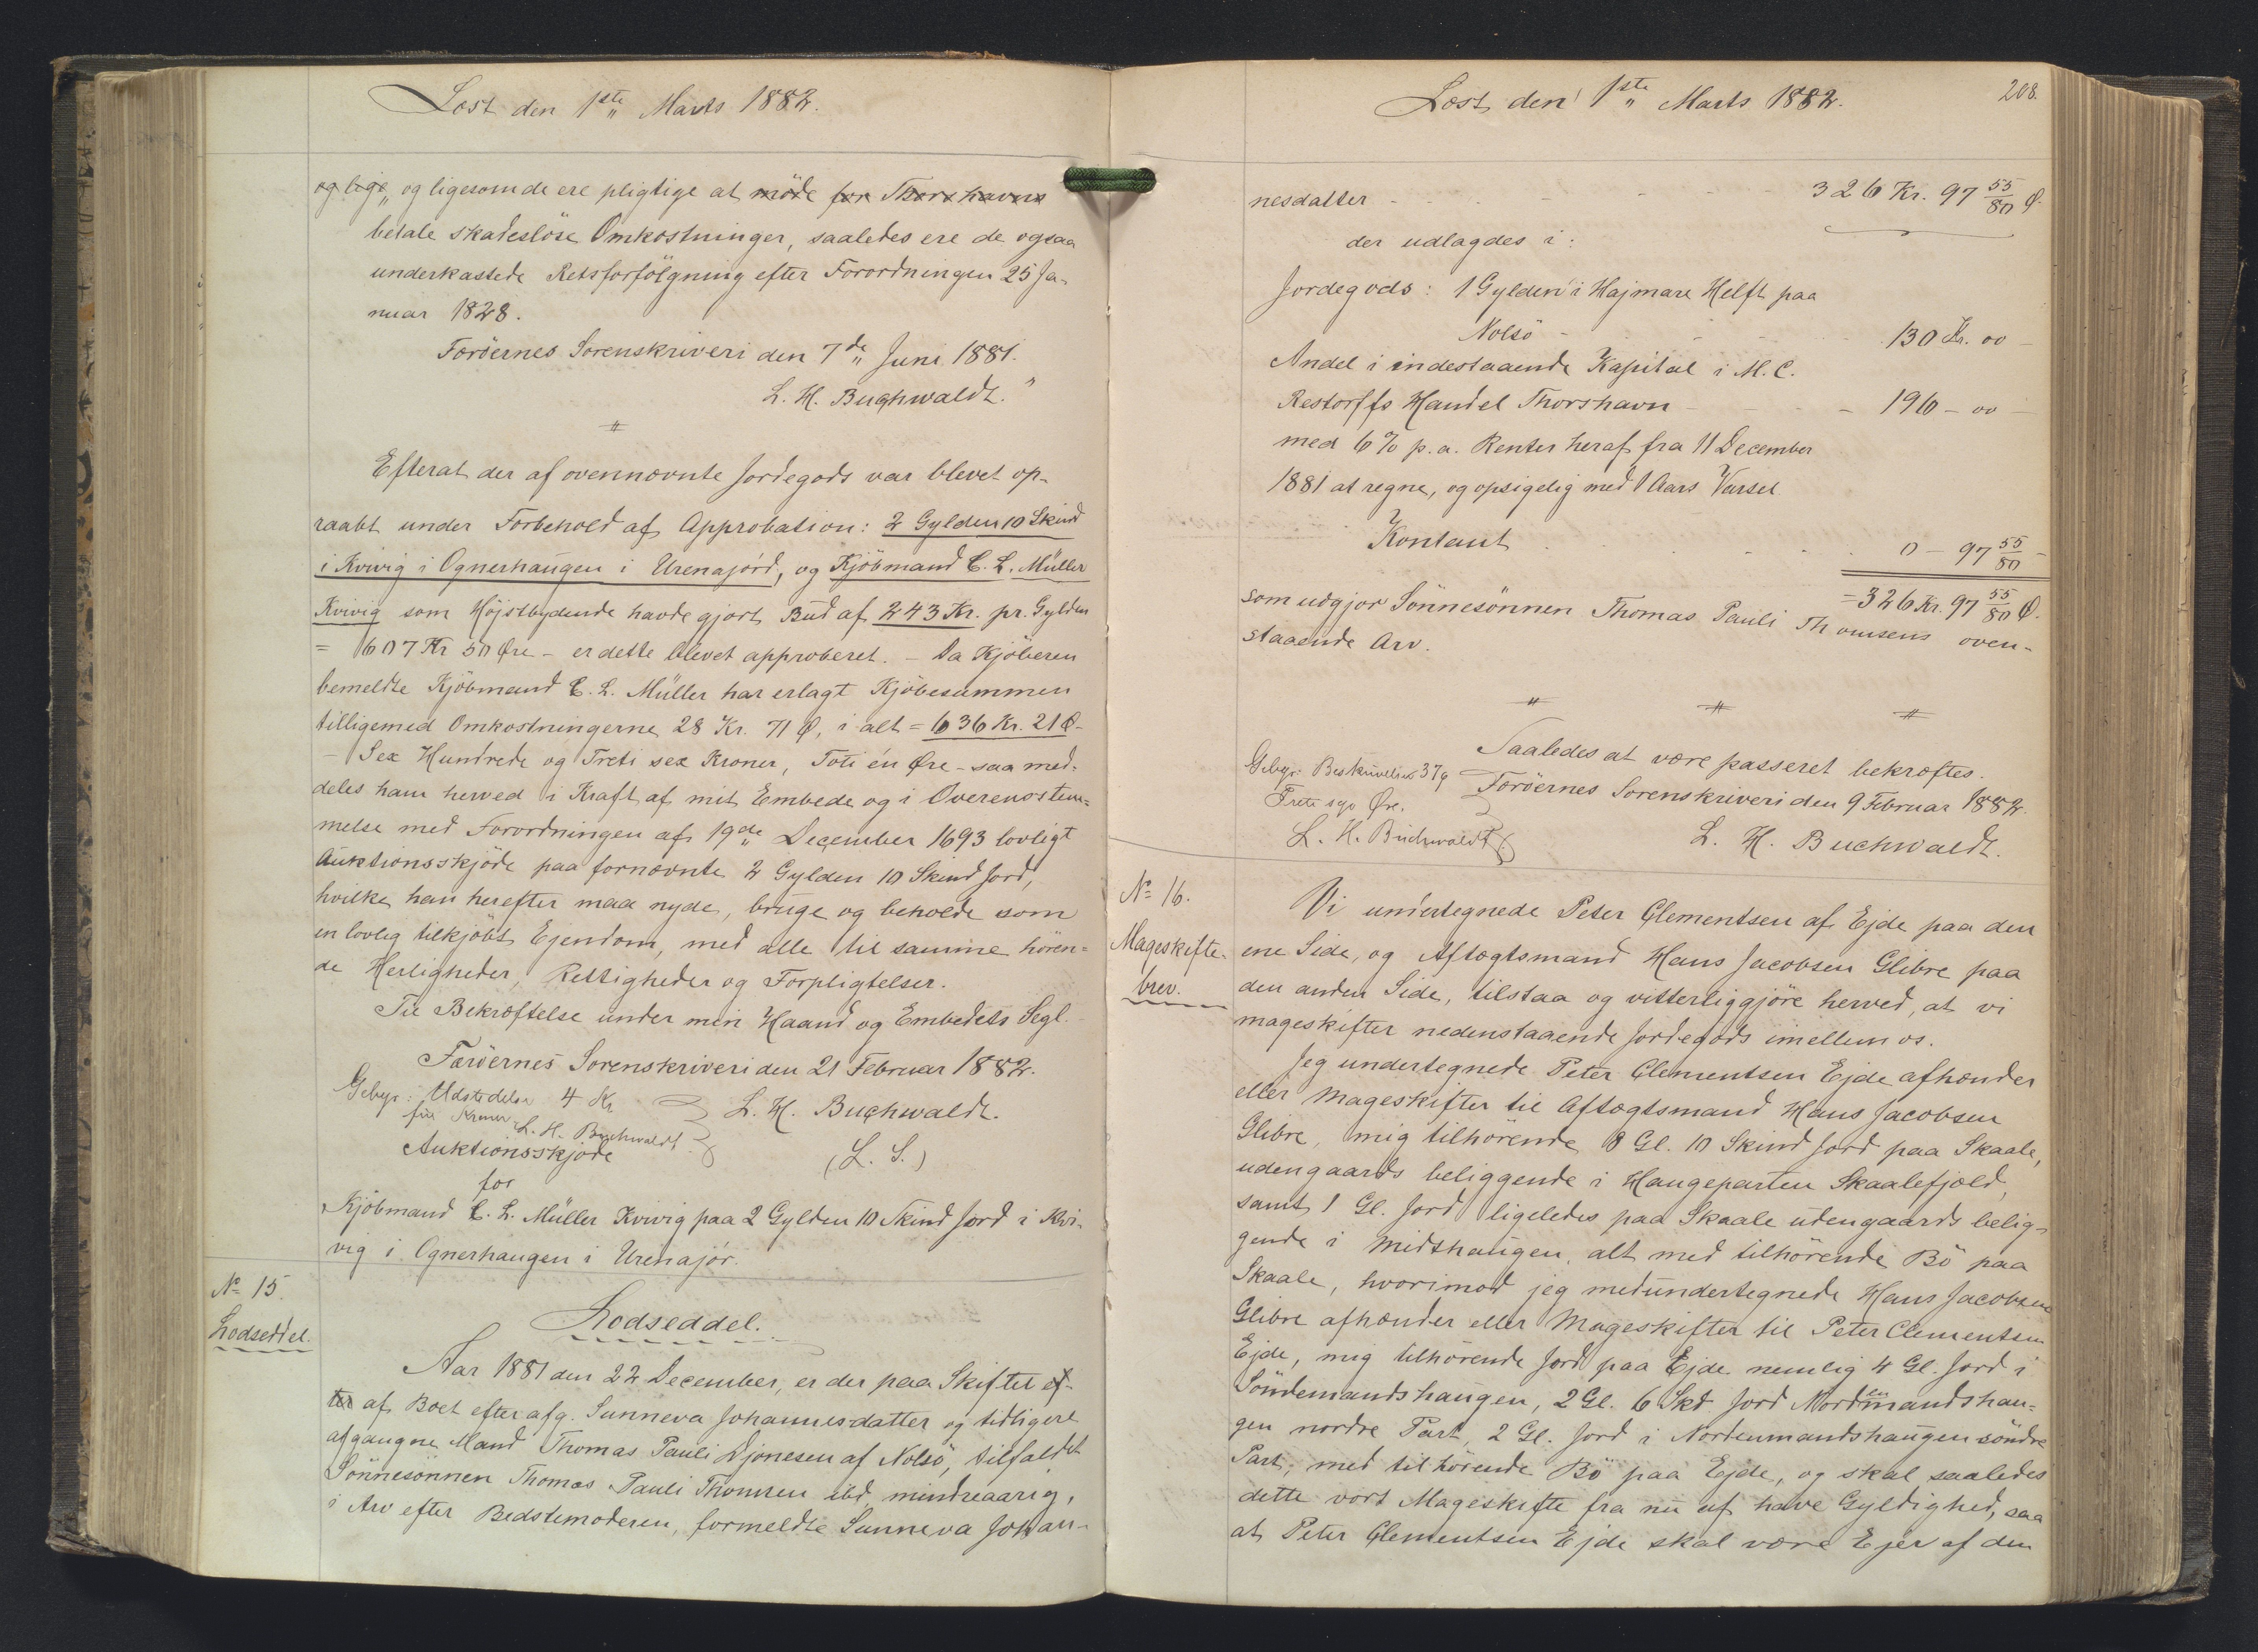 Læst den 1ste Marts 1882.
og lige„ og ligesom de ere pligtige at møde for Thorshavns
betale skadesløse Omkostninger, saaledes ere de ogsaa
underkastede Retsforfølgning efter Forordningen 25 Ja-
nuar 1828.
Færöernes Sorenskriveri den 7de Juni 1881.
L. H. Buchwaldt."
Efterat der af ovennævnte Jordegods var blevet op-
raabt under Forbehold af Approbation: 2 Gylden 10 Skind
i Kvivig i Ognerhaugen i Urenajórd, og Kjöbmand C. L. Müller
Kvivig som Højstbydende havde gjort Bud af 243 Kr. pr. Gylden
= 607 Kr 50 Øre - er dette blevet approberet. - Da Kjöberen
bemeldte Kjöbmand C. L. Müller har erlagt Kjöbesummen
tilligemed Omkostningerne 28 Kr. 71 Ø, i alt = 636 Kr. 21 Ø -
- Sex Hundrede og Treti sex Kroner, Toti én Øre - saa med-
deles ham herved i Kraft af mit Embede og i Overensstem-
melse med Forordningen af 19de December 1693 lovligt
Auktionsskjöde paa fornævnte 2 Gylden 10 Skind Jord,
hvilke han herefter maa nyde, bruge og beholde som
en lovlig tilkjöbt Ejendom, med alle til samme hören-
de Herligheder, Rettigheder og Forpligtelser.
Til Bekræftelse under min Haand og Embedets Segl.
Færöernes Sorenskriveri den 21 Februar 1882.
Gebyr: Udstedelse 4 Kr
L. H. Buchwaldt.
fire Kroner L. H. Buchwaldt
(L. S.)
Auktionsskjöde
for
Kjöbmand C. L. Müller Kvivig paa 2 Gylden 10 Skind Jord i Kvi-
vig i Ognerhaugen i Urenajór.
No 15.
Lodseddel.
Lodseddel.
Aar 1881 den 22 December, er der paa Skiftet ef-
ter af Boet efter afg. Sunneva Johannesdatter og tidligere
afgangne Mand Thomas Pauli Djonesen af Nolsö, tilfaldet
Sönnesönnen Thomas Pauli Thomsen ibd, mindreaarig,
i Arv efter Bedstemoderen, formeldte Sunneva Johan-
Læst den 1ste Marts 1882.
208.
nesdatter - 326 Kr. 97 55/80 Ø.
der udlagdes i:
Jordegods: 1 Gylden i Hajmare Helft paa
Nolsö - 130 Kr. 00 -
Andel i indestaaende Kapital i M. C.
Restorffs Handel Thorshavn - 196 - 00 -
med 6% p. a. Renter heraf fra 11 December
1881 at regne, og opsigelig med 1 Aars Varsel
Kontant 0 - 97 55/80 -
= 326 Kr. 97 55/80 Ø.
som udgjør Sönnesönnen Thomas Pauli Thomsens oven-
staaende Arv.
Saaledes at være passeret bekræftes.
Færöernes Sorenskriveri den 9 Februar 1882.
L. H. Buchwaldt.
Gebyr: Beskrivelse 37 Ø
Treti syv Øre.
L. H. Buchwaldt
No 16.
Mageskifte-
brev.
Vi undertegnede Peter Clementsen af Ejde paa den
ene Side, og Aftægtsmand Hans Jacobsen Glibre paa
den anden Side, tilstaa og vitterliggjöre herved, at vi
mageskifter nedenstaaende Jordegods imellem os.
Jeg undertegnede Peter Clementsen Ejde afhænder
eller Mageskifter til Aftægtsmand Hans Jacobsen
Glibre, mig tilhörende 8 Gl. 10 Skind Jord paa Skaale,
udengaards beliggende i Haugeparten Skaalefjæld,
samt 1 Gl. Jord ligeledes paa Skaale udengaards belig-
gende i Midthaugen, alt med tilhörende Bö paa
Skaale, hvorimod jeg medundertegnede Hans Jacobsen
Glibre afhænder eller Mageskifter til Peter Clementsen
Ejde, mig tilhörende Jord paa Ejde nemlig 4 Gl. Jord i
Söndemandshaugen, 2 Gl. 6 Skd. Jord Nordenmandshau-
gen nordre Part, 2 Gl. Jord i Nordenmandshaugen söndre
Part, med tilhörende Bö paa Ejde, og skal saaledes
dette vort Mageskifte fra nu af have Gyldighed, saa
at Peter Clementsen Ejde skal være Ejer af den